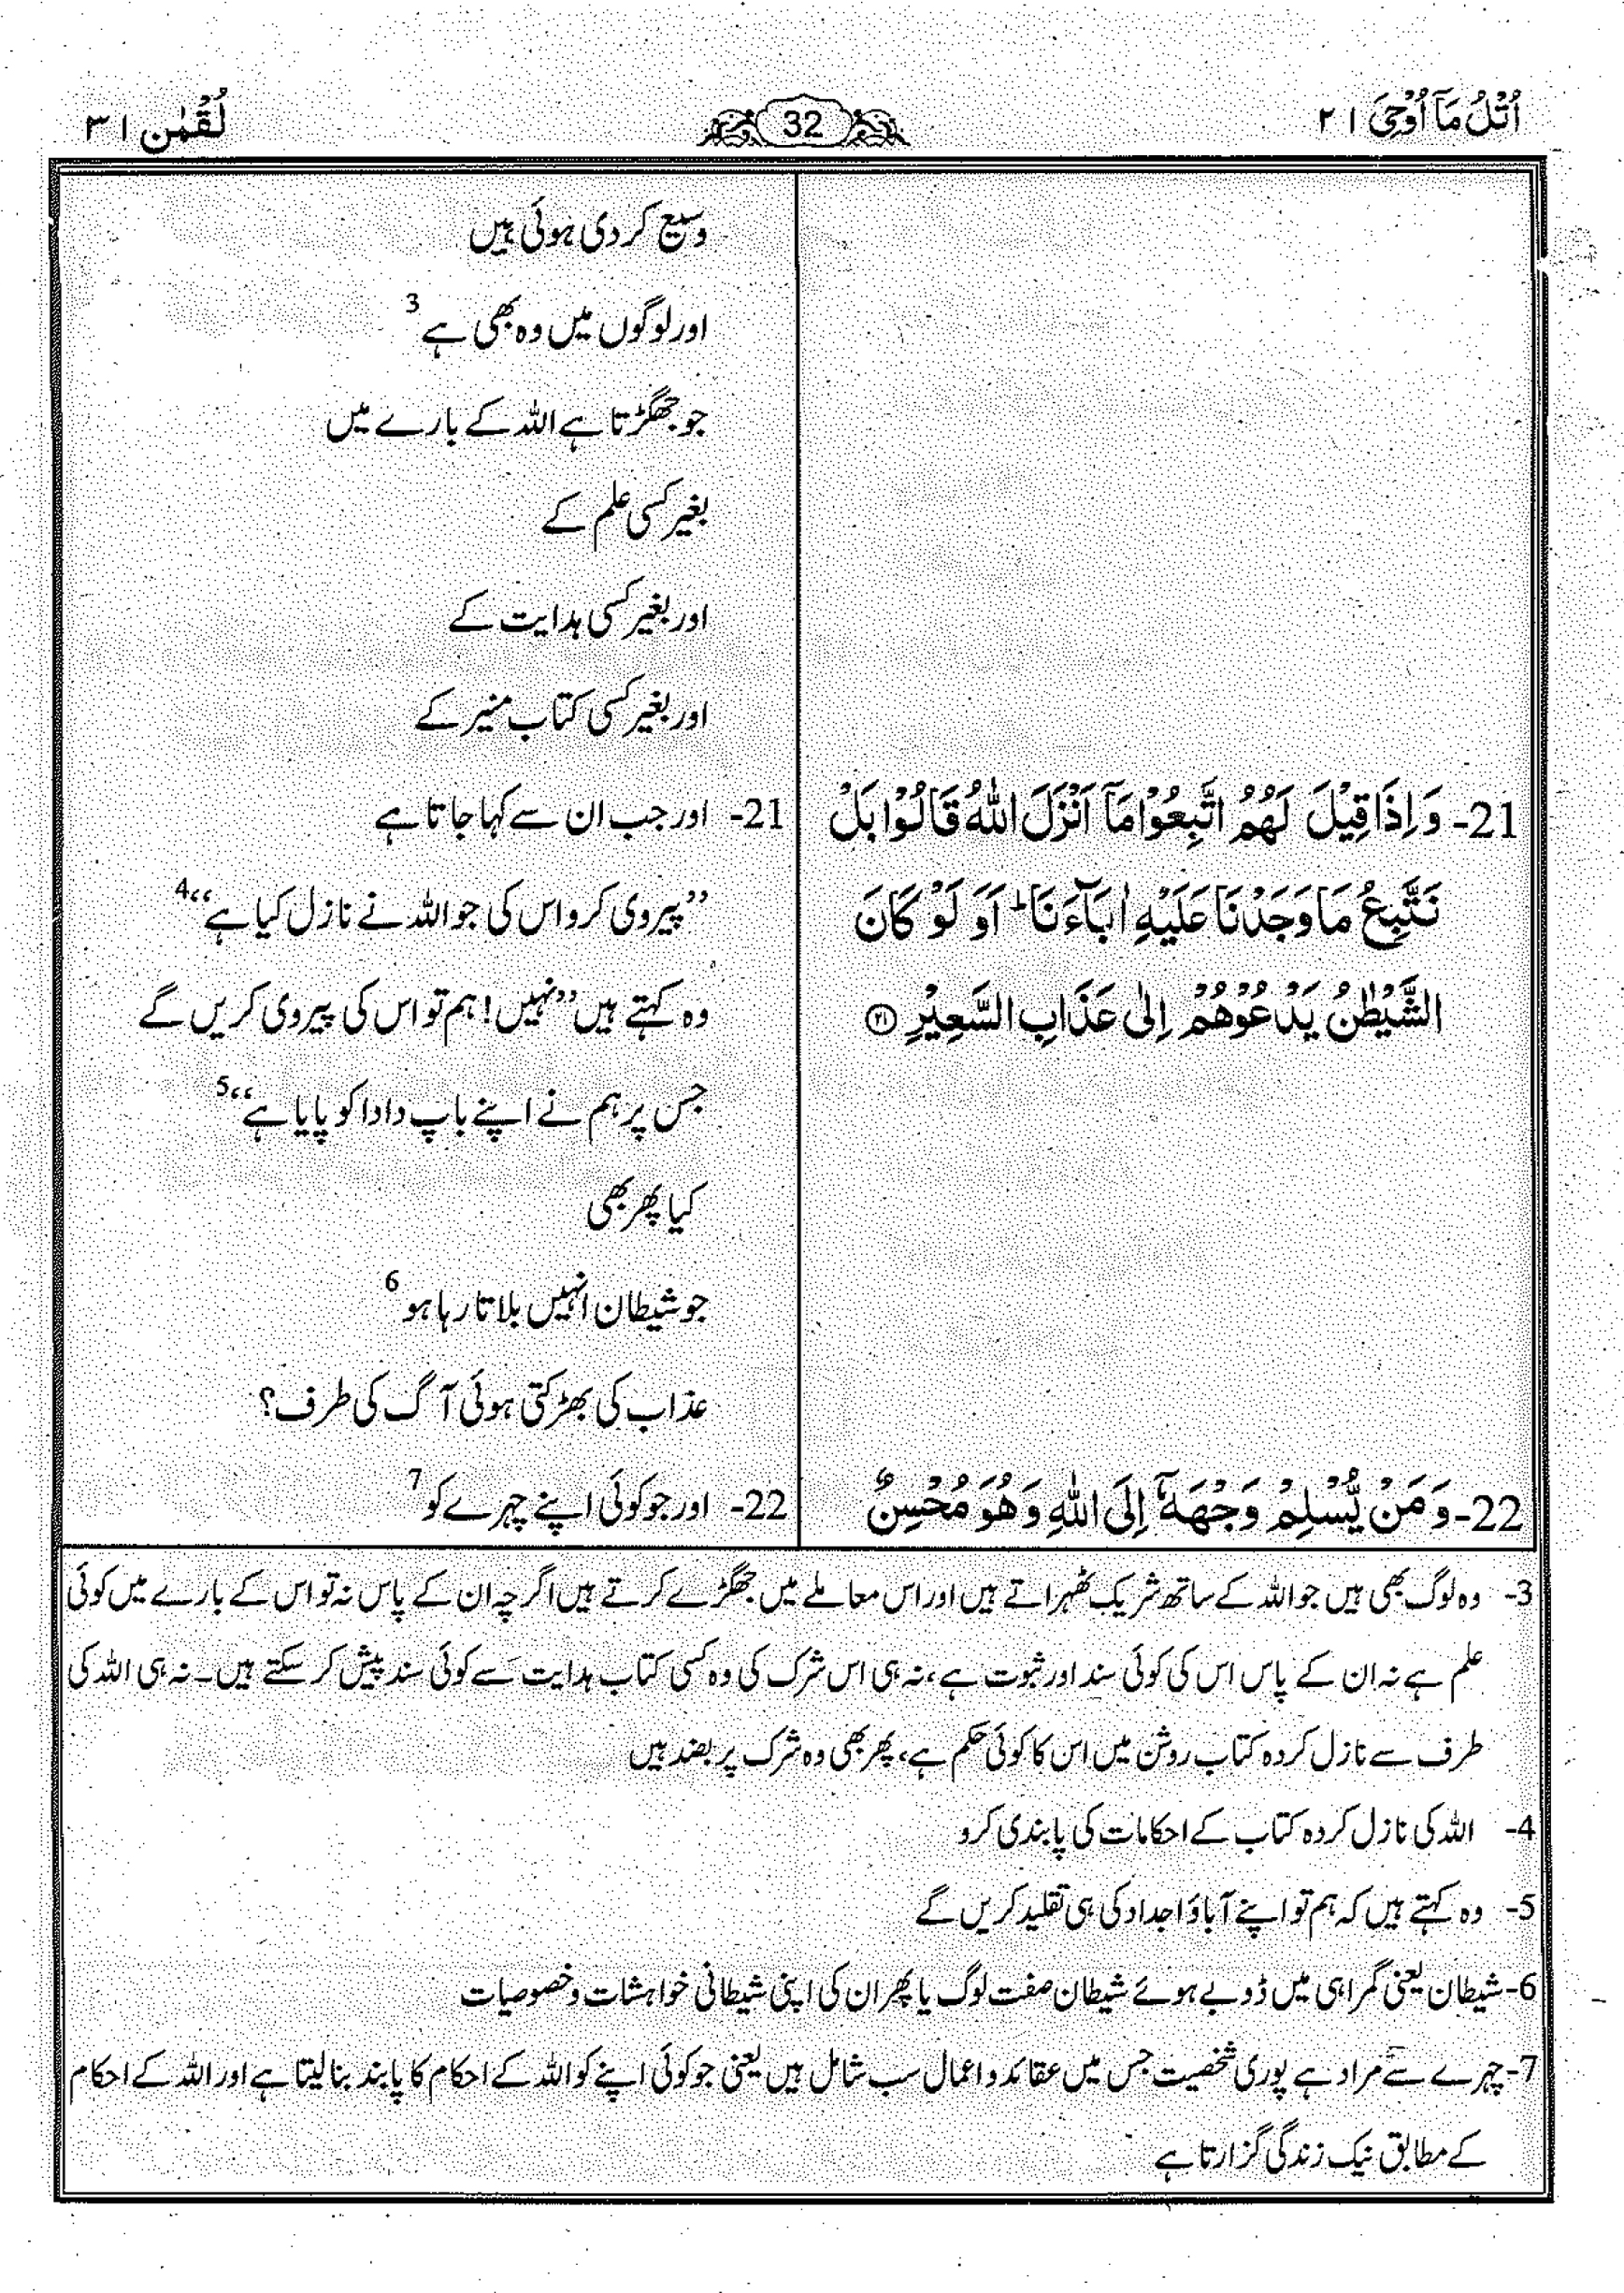 اُتْلُ مَآ اُوْحِیَ ۲۱
32
لُقْمٰن ۳۱
وسیع کر دی ہوئی ہیں
اور لوگوں میں وہ بھی ہے 3
جو جھگڑتا ہے اللہ کے بارے میں
بغیر کسی علم کے
اور بغیر کسی ہدایت کے
اور بغیر کسی کتاب منیر کے
21- وَ اِذَا قِیْلَ لَهُمُ اتَّبِعُوْا مَاۤ اَنْزَلَ اللّٰهُ قَالُوْا بَلْ
نَتَّبِعُ مَا وَجَدْنَا عَلَیْهِ اٰبَآءَنَا ؕ اَوَ لَوْ كَانَ
الشَّیْطٰنُ یَدْعُوْهُمْ اِلٰى عَذَابِ السَّعِیْرِ ۲۱
21- اور جب ان سے کہا جاتا ہے
’’پیروی کرو اس کی جو اللہ نے نازل کیا ہے‘‘ 4
وہ کہتے ہیں ’’نہیں! ہم تو اس کی پیروی کریں گے
جس پر ہم نے اپنے باپ دادا کو پایا ہے‘‘ 5
کیا پھر بھی
جو شیطان انہیں بلاتا رہا ہو 6
عذاب کی بھڑکتی ہوئی آگ کی طرف؟
22- وَ مَنْ یُّسْلِمْ وَجْهَهٗۤ اِلَى اللّٰهِ وَ هُوَ مُحْسِنٌ
22- اور جو کوئی اپنے چہرے کو 7
3- وہ لوگ بھی ہیں جو اللہ کے ساتھ شریک ٹھہراتے ہیں اور اس معاملے میں جھگڑے کرتے ہیں اگرچہ ان کے پاس نہ تو اس کے بارے میں کوئی
علم ہے نہ ان کے پاس اس کی کوئی سند اور ثبوت ہے، نہ ہی اس شرک کی وہ کسی کتاب ہدایت سے کوئی سند پیش کر سکتے ہیں۔ نہ ہی اللہ کی
طرف سے نازل کردہ کتاب روشن میں اس کا کوئی حکم ہے، پھر بھی وہ شرک پر بضد ہیں
4- اللہ کی نازل کردہ کتاب کے احکامات کی پابندی کرو
5- وہ کہتے ہیں کہ ہم تو اپنے آباؤ اجداد کی ہی تقلید کریں گے
6- شیطان یعنی گمراہی میں ڈوبے ہوئے شیطان صفت لوگ یا پھر ان کی اپنی شیطانی خواہشات و خصوصیات
7- چہرے سے مراد ہے پوری شخصیت جس میں عقائد و اعمال سب شامل ہیں یعنی جو کوئی اپنے کو اللہ کے احکام کا پابند بنا لیتا ہے اور اللہ کے احکام
کے مطابق نیک زندگی گزارتا ہے